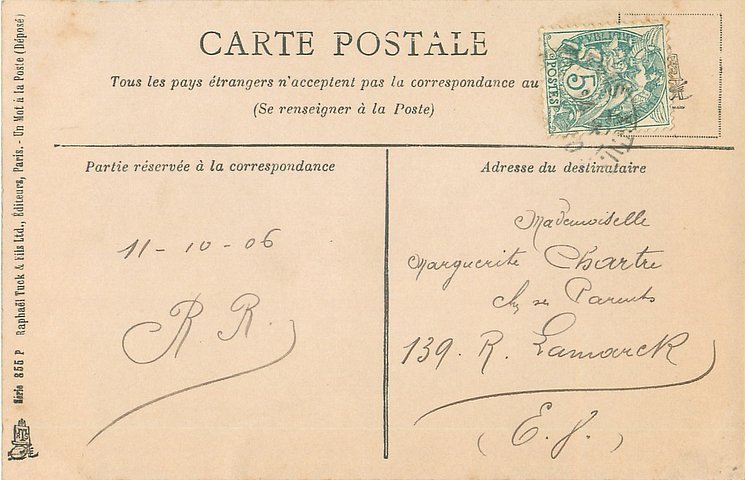 CARTE POSTALE
Tous les pays étrangers n'acceptent pas la correspondance au
(Se renseigner à la Poste)
5c
POSTES
Partie réservée à la correspondance
11-10-06
R R.
Adresse du destinataire
Mademoiselle
Marguerite Chartre
chz ses Parents
139. R. Lamarck
(E. V.)
Série 855 P Raphaël Tuck & Fils Ltd., Éditeurs, Paris. - Un Mot à la Poste (Déposé)